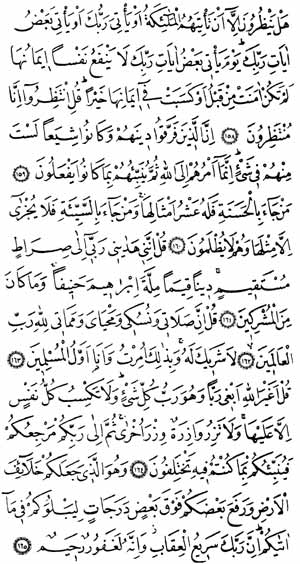 هَلْ يَنْظُرُونَ اِلَّٓا اَنْ تَأْتِيَهُمُ الْمَلٰٓئِكَةُ اَوْ يَأْتِيَ رَبُّكَ اَوْ يَأْتِيَ بَعْضُ
اٰيَاتِ رَبِّكَۜ يَوْمَ يَأْتِي بَعْضُ اٰيَاتِ رَبِّكَ لَا يَنْفَعُ نَفْسًا اِيمَانُهَا
لَمْ تَكُنْ اٰمَنَتْ مِنْ قَبْلُ اَوْ كَسَبَتْ فِٓي اِيمَانِهَا خَيْرًاۜ قُلِ انْتَظِرُٓوا اِنَّا
مُنْتَظِرُونَ ﴿١٥٨﴾ اِنَّ الَّذِينَ فَرَّقُوا دِينَهُمْ وَكَانُوا شِيَعًا لَسْتَ
مِنْهُمْ فِي شَيْءٍۜ اِنَّمَٓا اَمْرُهُمْ اِلَى اللّٰهِ ثُمَّ يُنَبِّئُهُمْ بِمَا كَانُوا يَفْعَلُونَ ﴿١٥٩﴾
مَنْ جَٓاءَ بِالْحَسَنَةِ فَلَهُ عَشْرُ اَمْثَالِهَاۚ وَمَنْ جَٓاءَ بِالسَّيِّئَةِ فَلَا يُجْزٰٓى
اِلَّا مِثْلَهَا وَهُمْ لَا يُظْلَمُونَ ﴿١٦٠﴾ قُلْ اِنَّنِي هَدٰينِي رَبِّٓي اِلٰى صِرَاطٍ
مُسْتَقِيمٍۚ دِينًا قِيَمًا مِلَّةَ اِبْرٰهِيمَ حَنِيفًاۚ وَمَا كَانَ
مِنَ الْمُشْرِكِينَ ﴿١٦١﴾ قُلْ اِنَّ صَلَاتِي وَنُسُكِي وَمَحْيَايَ وَمَمَاتِي لِلّٰهِ رَبِّ
الْعَالَمِينَۙ ﴿١٦٢﴾ لَا شَرِيكَ لَهُۚ وَبِذٰلِكَ اُمِرْتُ وَاَنَا اَوَّلُ الْمُسْلِمِينَ ﴿١٦٣﴾
قُلْ اَغَيْرَ اللّٰهِ اَبْغِي رَبًّا وَهُوَ رَبُّ كُلِّ شَيْءٍۜ وَلَا تَكْسِبُ كُلُّ نَفْسٍ
اِلَّا عَلَيْهَاۚ وَلَا تَزِرُ وَازِرَةٌ وِزْرَ اُخْرٰىۚ ثُمَّ اِلٰى رَبِّكُمْ مَرْجِعُكُمْ
فَيُنَبِّئُكُمْ بِمَا كُنْتُمْ فِيهِ تَخْتَلِفُونَ ﴿١٦٤﴾ وَهُوَ الَّذِي جَعَلَكُمْ خَلَٓائِفَ
الْاَرْضِ وَرَفَعَ بَعْضَكُمْ فَوْقَ بَعْضٍ دَرَجَاتٍ لِيَبْلُوَكُمْ فِي مَٓا
اٰتٰيكُمْۜ اِنَّ رَبَّكَ سَرِيعُ الْعِقَابِۘ وَاِنَّهُ لَغَفُورٌ رَحِيمٌ ﴿١٦٥﴾